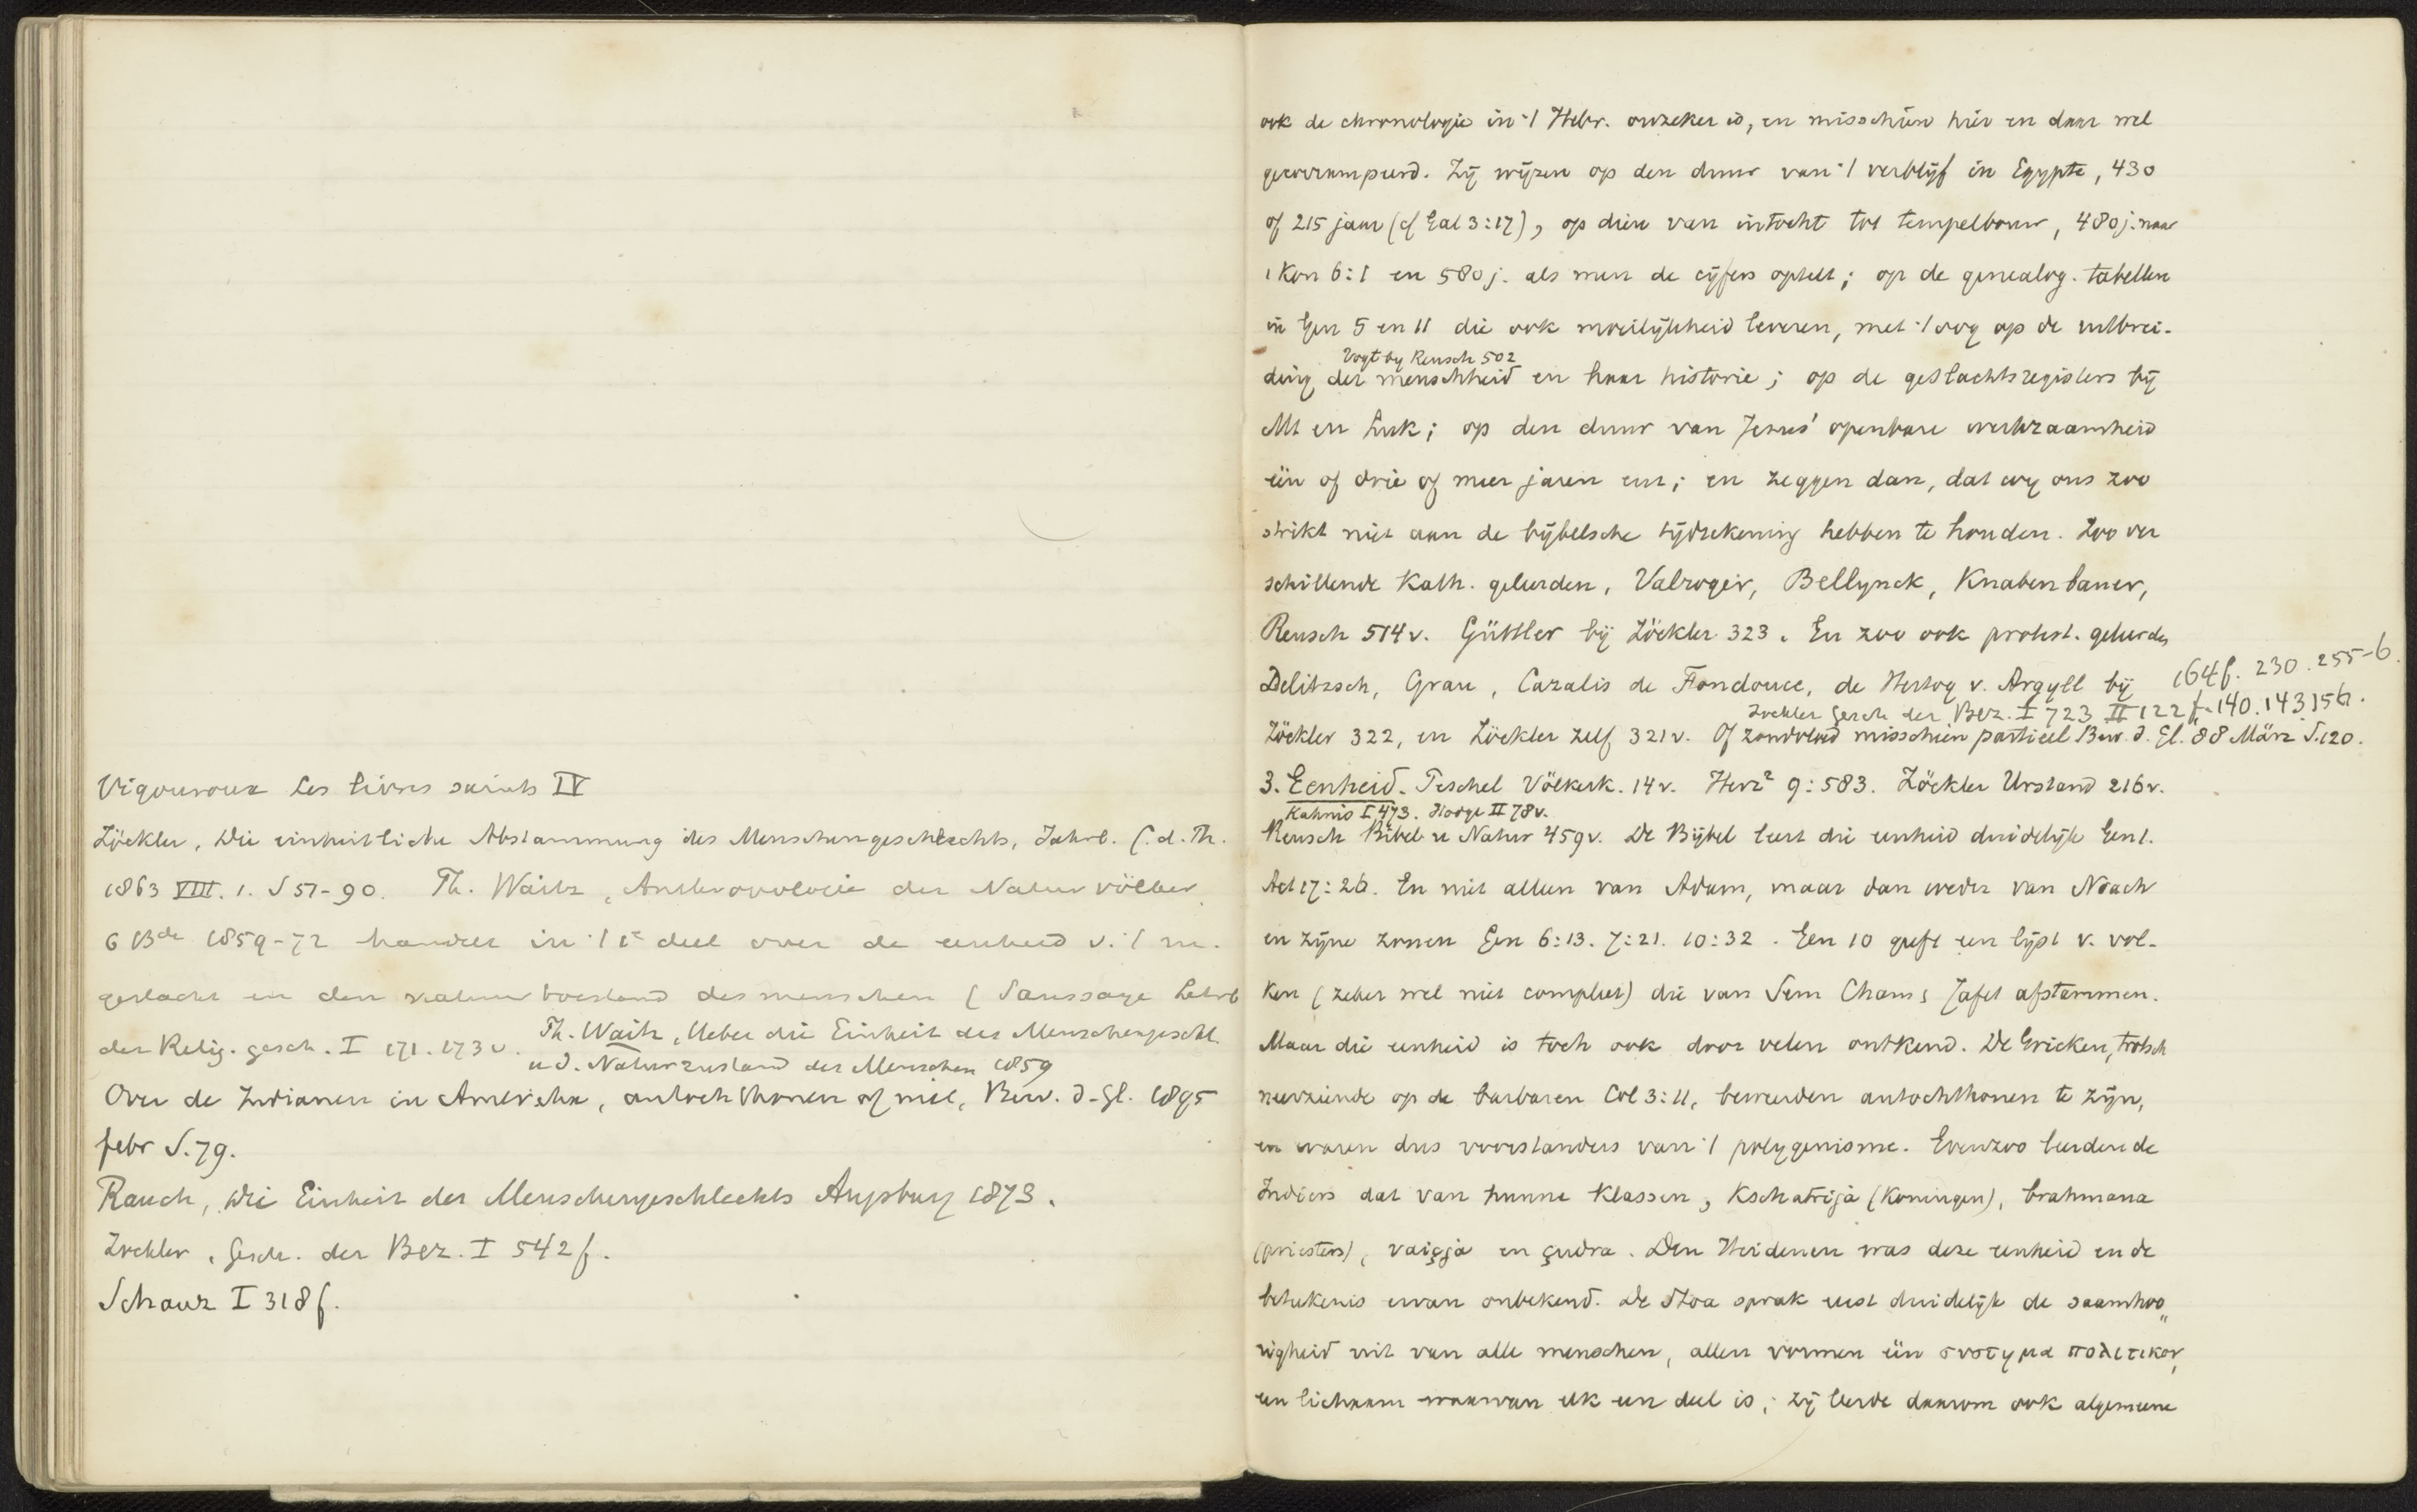 Vigouroux Les livres saints IV
Zöckler, Die einheitliche Abstammung des Menschengeschlechts, Jahrb. f. d. Th.
1863 VIII. 1. S 51-90. Th. Waitz, Anthropologie der Naturvölker,
6 Bde 1859-72 handelt in 't 1e deel over de eenheid v. 't m.
geslacht en den natuurtoestand des menschen (Saussaye Lehrb
der Relig. gesch. I 171. 173 v. Th. Waitz, Ueber die Einheit des Menschengeschl.
u d. Naturzustand des Menschen 1859
Over de Indianen in Amerika, autochthonen of niet, Bew. d. Gl. 1895
febr S. 79.
Rauch, Die Einheit des Menschengeschlechts Augsburg 1873.
Zöckler, Gesch. der Bez. I 542 f.
Schanz I 318 f.
ook de chronologie in 't Hebr. onzeker is, en misschien hier en daar wel
gecorrumpeerd. Zij wijzen op den duur van 't verblijf in Egypte, 430
of 215 jaar (cf Gal 3:17), op dien van intocht tot tempelbouw, 480 j. naar
1 Kon 6:1 en 580 j. als men de cijfers optelt; op de genealog. tabellen
in Gen 5 en 11 die ook moeilijkheid leveren, met 't oog op de uitbrei-
Vogt by Reusch 502
ding der menschheid en haar historie; op de geslachtsregisters bij
Mt en Luk; op den duur van Jezus' openbare werkzaamheid
één of drie of meer jaren enz; en zeggen dan, dat wij ons zoo
strikt niet aan de bijbelsche tijdrekening hebben te houden. Zoo ver
schillende Kath. geleerden, Valroger, Bellynck, Knabenbauer,
Reusch 514 v. Güttler bij Zöckler 323. En zoo ook protest. geleerden
Delitzsch, Grau, Cazalis de Fondouce, de Hertog v. Argyll bij
164 f. 230. 255-6.
Zöckler Gesch der Bez. I 723 II 122 f. 140. 143. 156.
Zöckler 322, en Zöckler zelf 321 v. Of zondvloed misschien partieel Bew. d. Gl. 88 März S. 120.
3. Eenheid. Peschel Völkerk. 14 v. Herz² 9:583. Zöckler Urstand 216 v.
Kahnis I 473. Hodge II 78 v.
Reusch Bibel u Natur 459 v. De Bijbel leert die eenheid duidelijk Gen 1.
Act 17:26. En niet alleen van Adam, maar dan weder van Noach
en zijne zonen Gen 6:13. 7:21. 10:32. Gen 10 geeft een lijst v. vol-
ken (zeker wel niet compleet) die van Sem Cham & Jafet afstammen.
Maar die eenheid is toch ook door velen ontkend. De Grieken, trotsch
neerziende op de barbaren Col 3:11, beweerden autochthonen te zijn,
en waren dus voorstanders van 't polygenisme. Evenzoo leerden de
Indiers dat van hunne klassen, Kschatrija (Koningen), brahmana
(priesters), vaiçja en çudra. Den Heidenen was deze eenheid en de
beteekenis ervan onbekend. De Stoa sprak eerst duidelijk de saamhoo„
righeid uit van alle menschen, allen vormen één συστημα πολιτικον,
een lichaam waarvan elk een deel is; zij leerde daarom ook algemeene